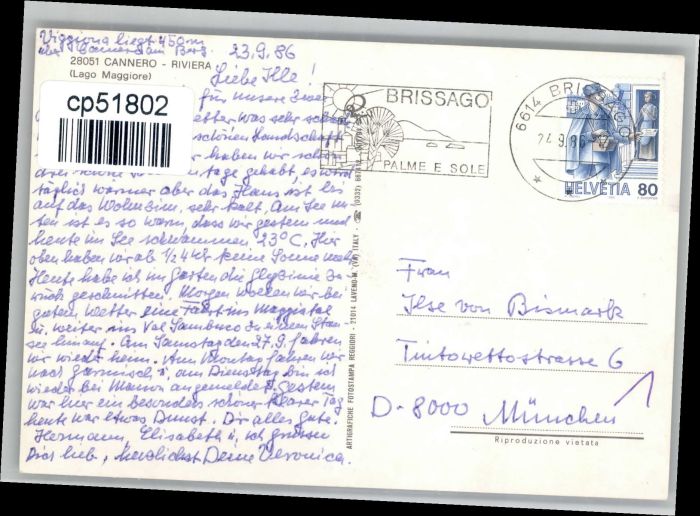 Viggiona liegt 450 m
über Cannero am Berg.
23.9.86
28051 CANNERO - RIVIERA
(Lago Maggiore)
Liebe Ille!
cp51802
für unsere
etter was sehr
schönen Landschaft
haben wir schon
tage gehabt, es wird
täglich warmer aber das Haus ist bis
auf das Wohnzim. sehr kalt. Am See
ten ist es so warm, dass wir gestern und
heute im See schwammen, 23°C. Hier
oben haben wir ab 1/2 4 Uhr keine Sonne mehr.
Heute habe ich im Garten die Glyzinie zu-
rück geschnitten. Morgen wollen wir bei
gutem Wetter eine Fahrt ins Maggiatal
u. weiter ins Val Sambuco zu dem Stau-
see hinauf. Am Samstag den 27.9. fahren
wir wieder heim. Am Montag fahren wir
nach Garmisch u. am Dienstag bin ich
wieder bei Manon angemeldet. Gestern
war hier ein besonders schöner klarer Tag
heute war etwas Dunst. Dir alles gute.
Hermann, Elisabeth u. ich grüssen
Dich lieb, herzlichst Deine Veronica.
ARTIGRAFICHE FOTOSTAMPA REGGIORI - 21014 LAVENO-M. (VA) ITALY - ☎ (0332)
BRISSAGO
PALME E SOLE
6614 BRISSAGO
24.9.86
HELVETIA 80
Frau
Ilse von Bismark
Tintorettostrasse 6
D-8000 München
Riproduzione vietata